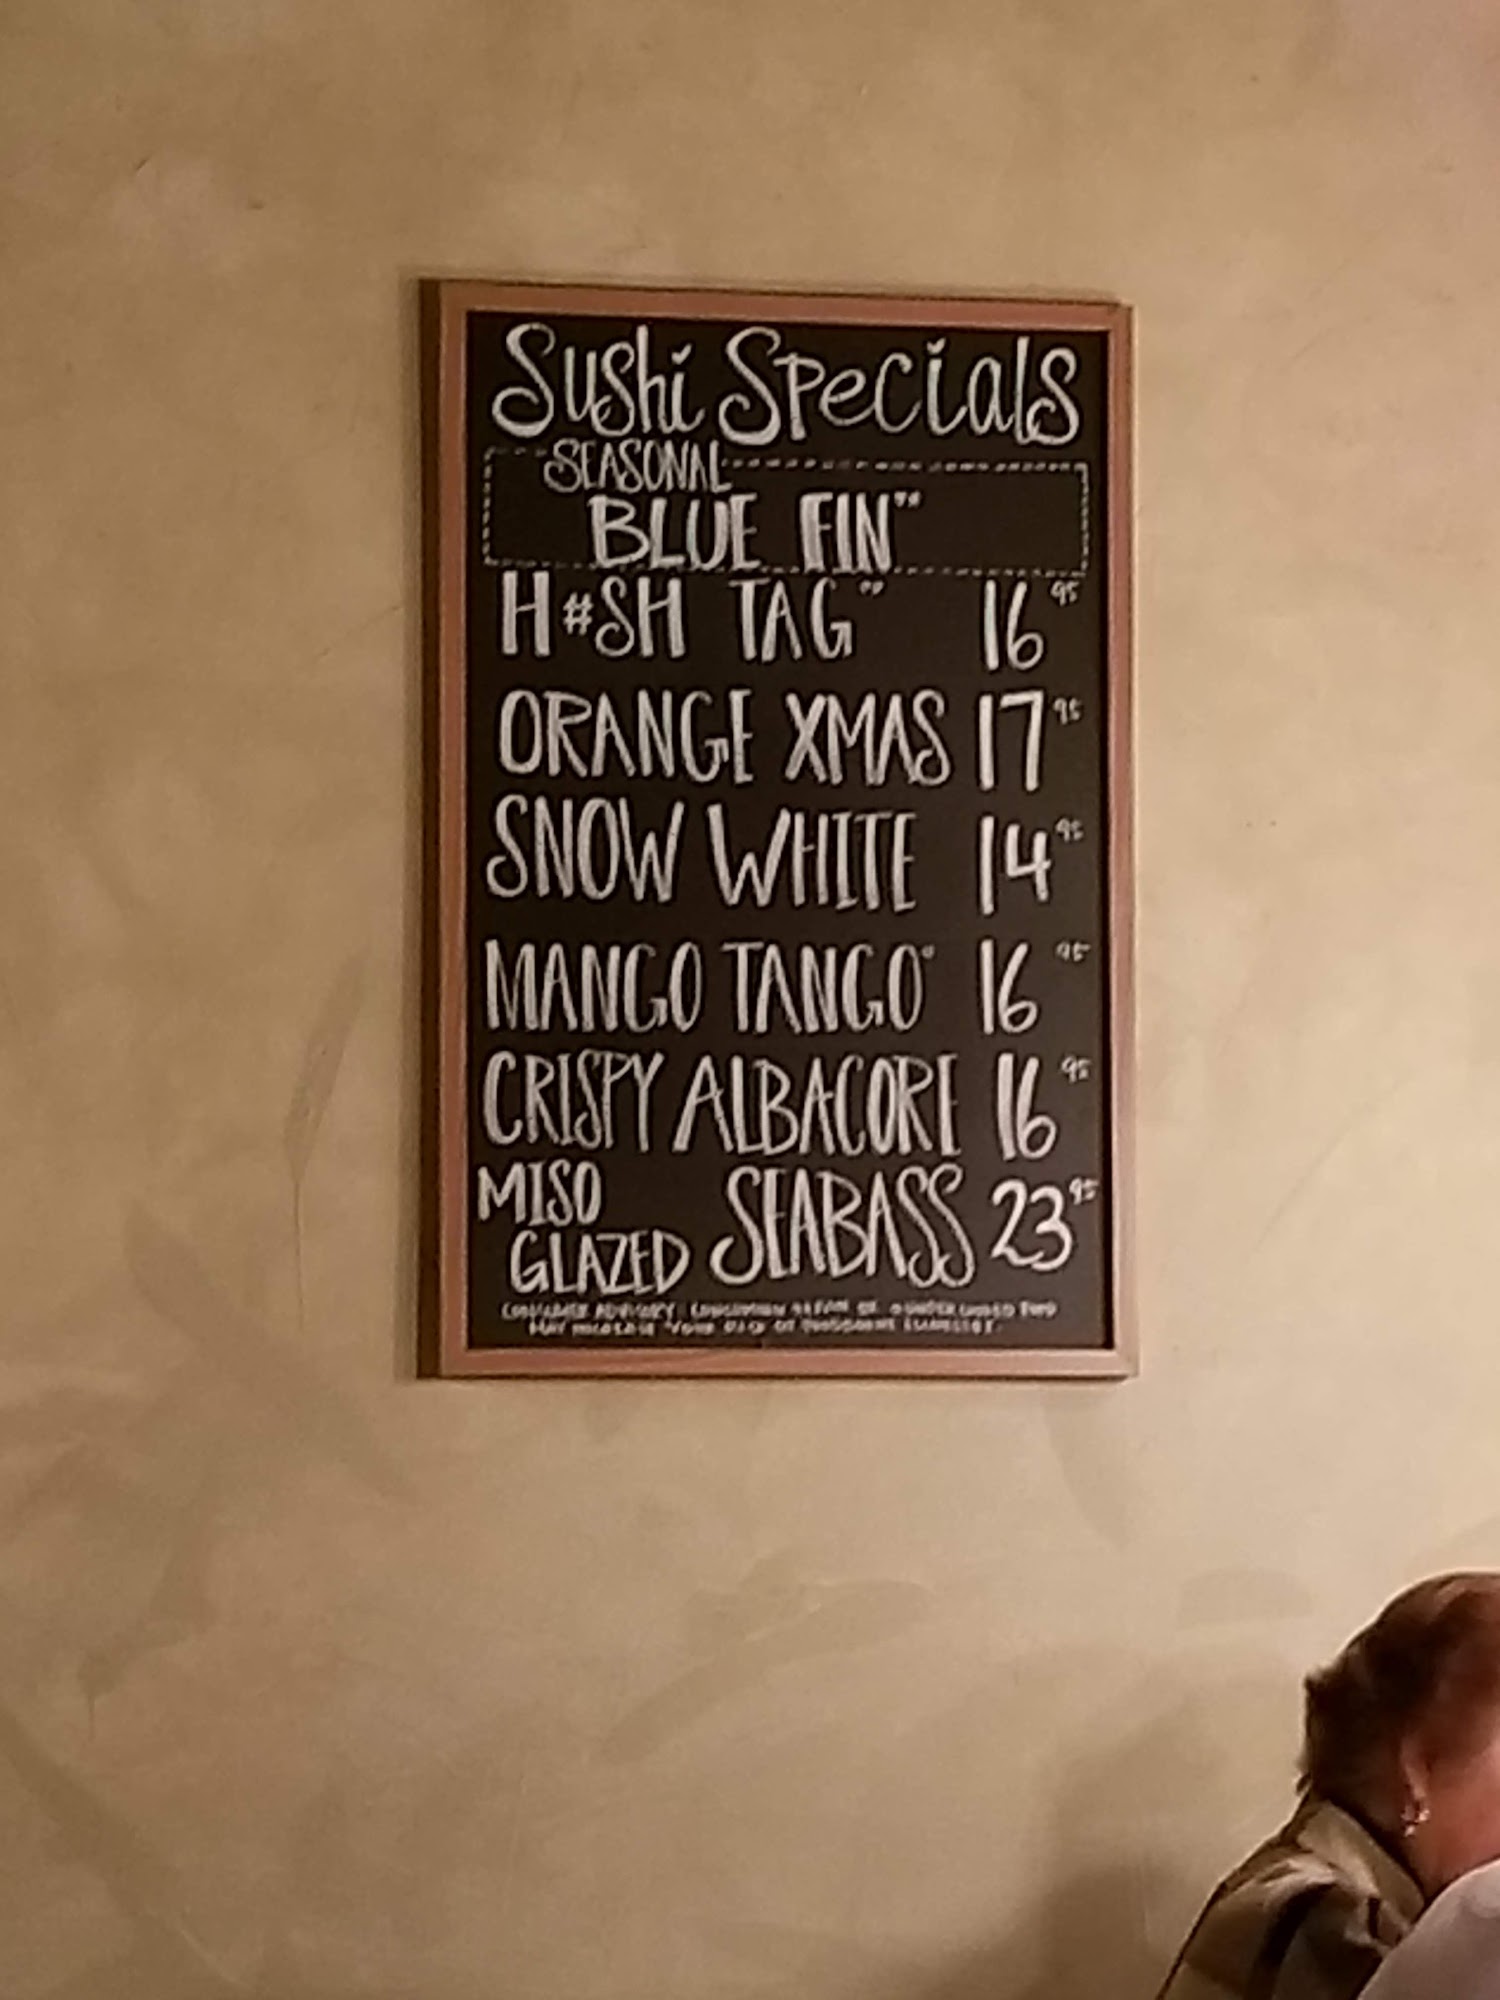 Sushi Specials
SEASONAL
BLUE FIN**
H#SH TAG** 16 95
ORANGE XMAS 17 95
SNOW WHITE 14 95
MANGO TANGO* 16 95
CRISPY ALBACORE 16 95
MISO
GLAZED SEABASS 23 95
CONSUMER ADVISORY: CONSUMPTION OF UNDERCOOKED FOOD
MAY INCREASE YOUR RISK OF FOODBORNE ILLNESSES.